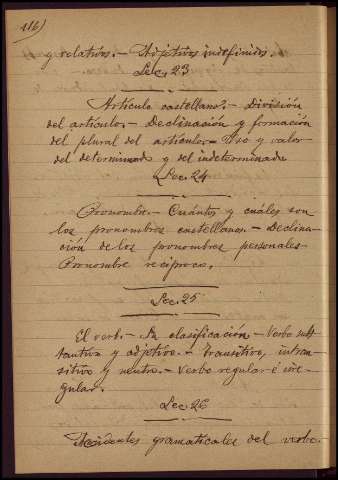 116)
y relativos.- Adjetivos indefinidos.
Lec. 23
Artículo castellano.- División
del artículo.- Declinación y formación
del plural del artículo.- Uso y valor
del determinado y del indeterminado
Lec. 24
Pronombre.- Cuántos y cuáles son
los pronombres castellanos.- Declina-
ción de los pronombres personales-
Pronombre recíproco.
Lec. 25
El verbo.- Su clasificación.- Verbo subs
tantivo y adjetivo.- Transitivo, intran-
sitivo y neutro.- Verbo regular é irre-
gular.
Lec. 26
Accidentes gramaticales del verbo.-